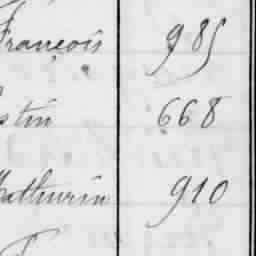 François 985
stin 668
Mathurin 910